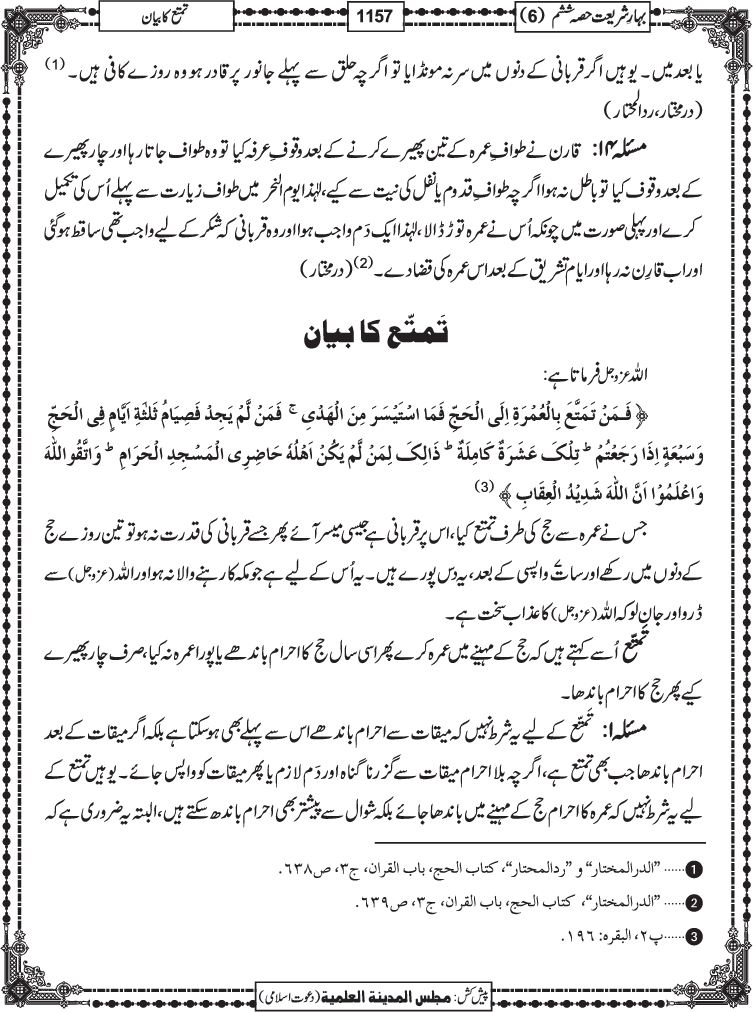 بہارِ شریعت حصہ ششم (6)
1157
تمتع کا بیان
یا بعد میں۔ یوہیں اگر قربانی کے دنوں میں سر نہ مونڈایا تو اگرچہ حلق سے پہلے جانور پر قادر ہو وہ روزے کافی ہیں۔ (1)
(درمختار، ردالمحتار)
مسئلہ ۱۴: قارن نے طوافِ عمرہ کے تین پھیرے کرنے کے بعد وقوفِ عرفہ کیا تو وہ طواف جاتا رہا اور چار پھیرے
کے بعد وقوف کیا تو باطل نہ ہوا اگرچہ طوافِ قدوم یا نفل کی نیت سے کیے، لہٰذا یوم النحر میں طواف زیارت سے پہلے اُس کی تکمیل
کرے اور پہلی صورت میں چونکہ اُس نے عمرہ توڑ ڈالا، لہٰذا ایک دَم واجب ہوا اور وہ قربانی کہ شکر کے لیے واجب تھی ساقط ہوگئی
اور اب قارِن نہ رہا اور ایام تشریق کے بعد اس عمرہ کی قضا دے۔ (2) (درمختار)
تَمتّع کا بیان
اللہ عزوجل فرماتا ہے:
﴿ فَمَنْ تَمَتَّعَ بِالْعُمْرَةِ اِلَی الْحَجِّ فَمَا اسْتَیْسَرَ مِنَ الْهَدْیِ ۚ فَمَنْ لَّمْ یَجِدْ فَصِیَامُ ثَلٰثَةِ اَیَّامٍ فِی الْحَجِّ
وَسَبْعَةٍ اِذَا رَجَعْتُمْ ؕ تِلْکَ عَشَرَةٌ کَامِلَةٌ ؕ ذَالِکَ لِمَنْ لَّمْ یَکُنْ اَهْلُهٗ حَاضِرِی الْمَسْجِدِ الْحَرَامِ ؕ وَاتَّقُوا اللّٰهَ
وَاعْلَمُوْا اَنَّ اللّٰهَ شَدِیْدُ الْعِقَابِ ﴾ (3)
جس نے عمرہ سے حج کی طرف تمتع کیا، اس پر قربانی ہے جیسی میسر آئے پھر جسے قربانی کی قدرت نہ ہو تو تین روزے حج
کے دنوں میں رکھے اور سات ۷ واپسی کے بعد، یہ دس پورے ہیں۔ یہ اُس کے لیے ہے جو مکہ کا رہنے والا نہ ہو اور اللہ (عزوجل) سے
ڈرو اور جان لو کہ اللہ (عزوجل) کا عذاب سخت ہے۔
تَمتّع اُسے کہتے ہیں کہ حج کے مہینے میں عمرہ کرے پھر اسی سال حج کا احرام باندھے یا پورا عمرہ نہ کیا، صرف چار پھیرے
کیے پھر حج کا احرام باندھا۔
مسئلہ ۱: تمتّع کے لیے یہ شرط نہیں کہ میقات سے احرام باندھے اس سے پہلے بھی ہوسکتا ہے بلکہ اگر میقات کے بعد
احرام باندھا جب بھی تمتع ہے، اگرچہ بلا احرام میقات سے گزرنا گناہ اور دَم لازم یا پھر میقات کو واپس جائے۔ یوہیں تمتع کے
لیے یہ شرط نہیں کہ عمرہ کا احرام حج کے مہینے میں باندھا جائے بلکہ شوال سے پیشتر بھی احرام باندھ سکتے ہیں، البتہ یہ ضروری ہے کہ
1 ...... "الدرالمختار" و "ردالمحتار"، کتاب الحج، باب القران، ج۳، ص۶۳۸.
2 ...... "الدرالمختار"، کتاب الحج، باب القران، ج۳، ص۶۳۹.
3 ...... پ۲، البقرہ: ۱۹۶.
پیش کش: مجلس المدینة العلمیة (دعوت اسلامی)